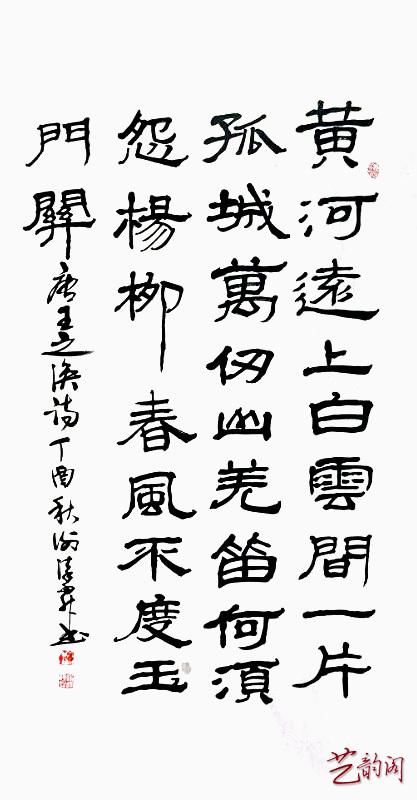 黄河遠上白雲間一片
孤城萬仞山羌笛何須
怨楊柳春風不度玉
門關
唐王之渙詩丁酉秋
艺韵阁